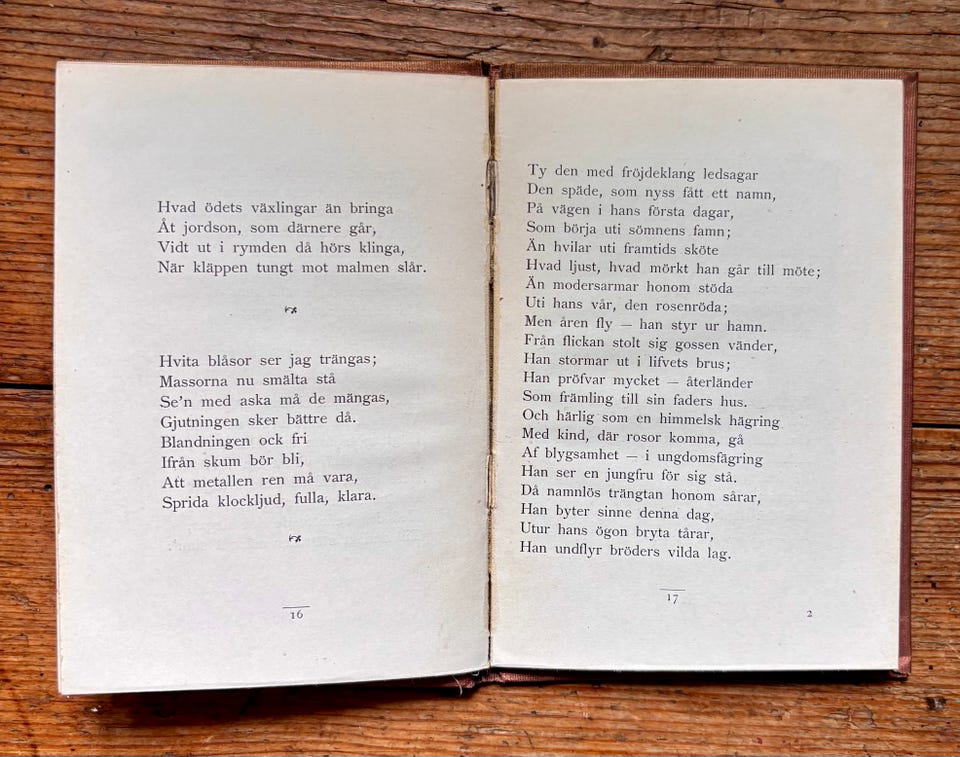 Hvad ödets växlingar än bringa
Åt jordson, som därnere går,
Vidt ut i rymden då hörs klinga,
När kläppen tungt mot malmen slår.
Hvita blåsor ser jag trängas;
Massorna nu smälta stå
Se'n med aska må de mängas,
Gjutningen sker bättre då.
Blandningen ock fri
Ifrån skum bör bli,
Att metallen ren må vara,
Sprida klockljud, fulla, klara.
16
Ty den med fröjdeklang ledsagar
Den späde, som nyss fått ett namn,
På vägen i hans första dagar,
Som börja uti sömnens famn;
Än hvilar uti framtids sköte
Hvad ljust, hvad mörkt han går till möte;
Än modersarmar honom stöda
Uti hans vår, den rosenröda;
Men åren fly — han styr ur hamn.
Från flickan stolt sig gossen vänder,
Han stormar ut i lifvets brus;
Han pröfvar mycket — återländer
Som främling till sin faders hus.
Och härlig som en himmelsk hägring
Med kind, där rosor komma, gå
Af blygsamhet — i ungdomsfägring
Han ser en jungfru för sig stå.
Då namnlös trängtan honom sårar,
Han byter sinne denna dag,
Utur hans ögon bryta tårar,
Han undflyr bröders vilda lag.
17
2